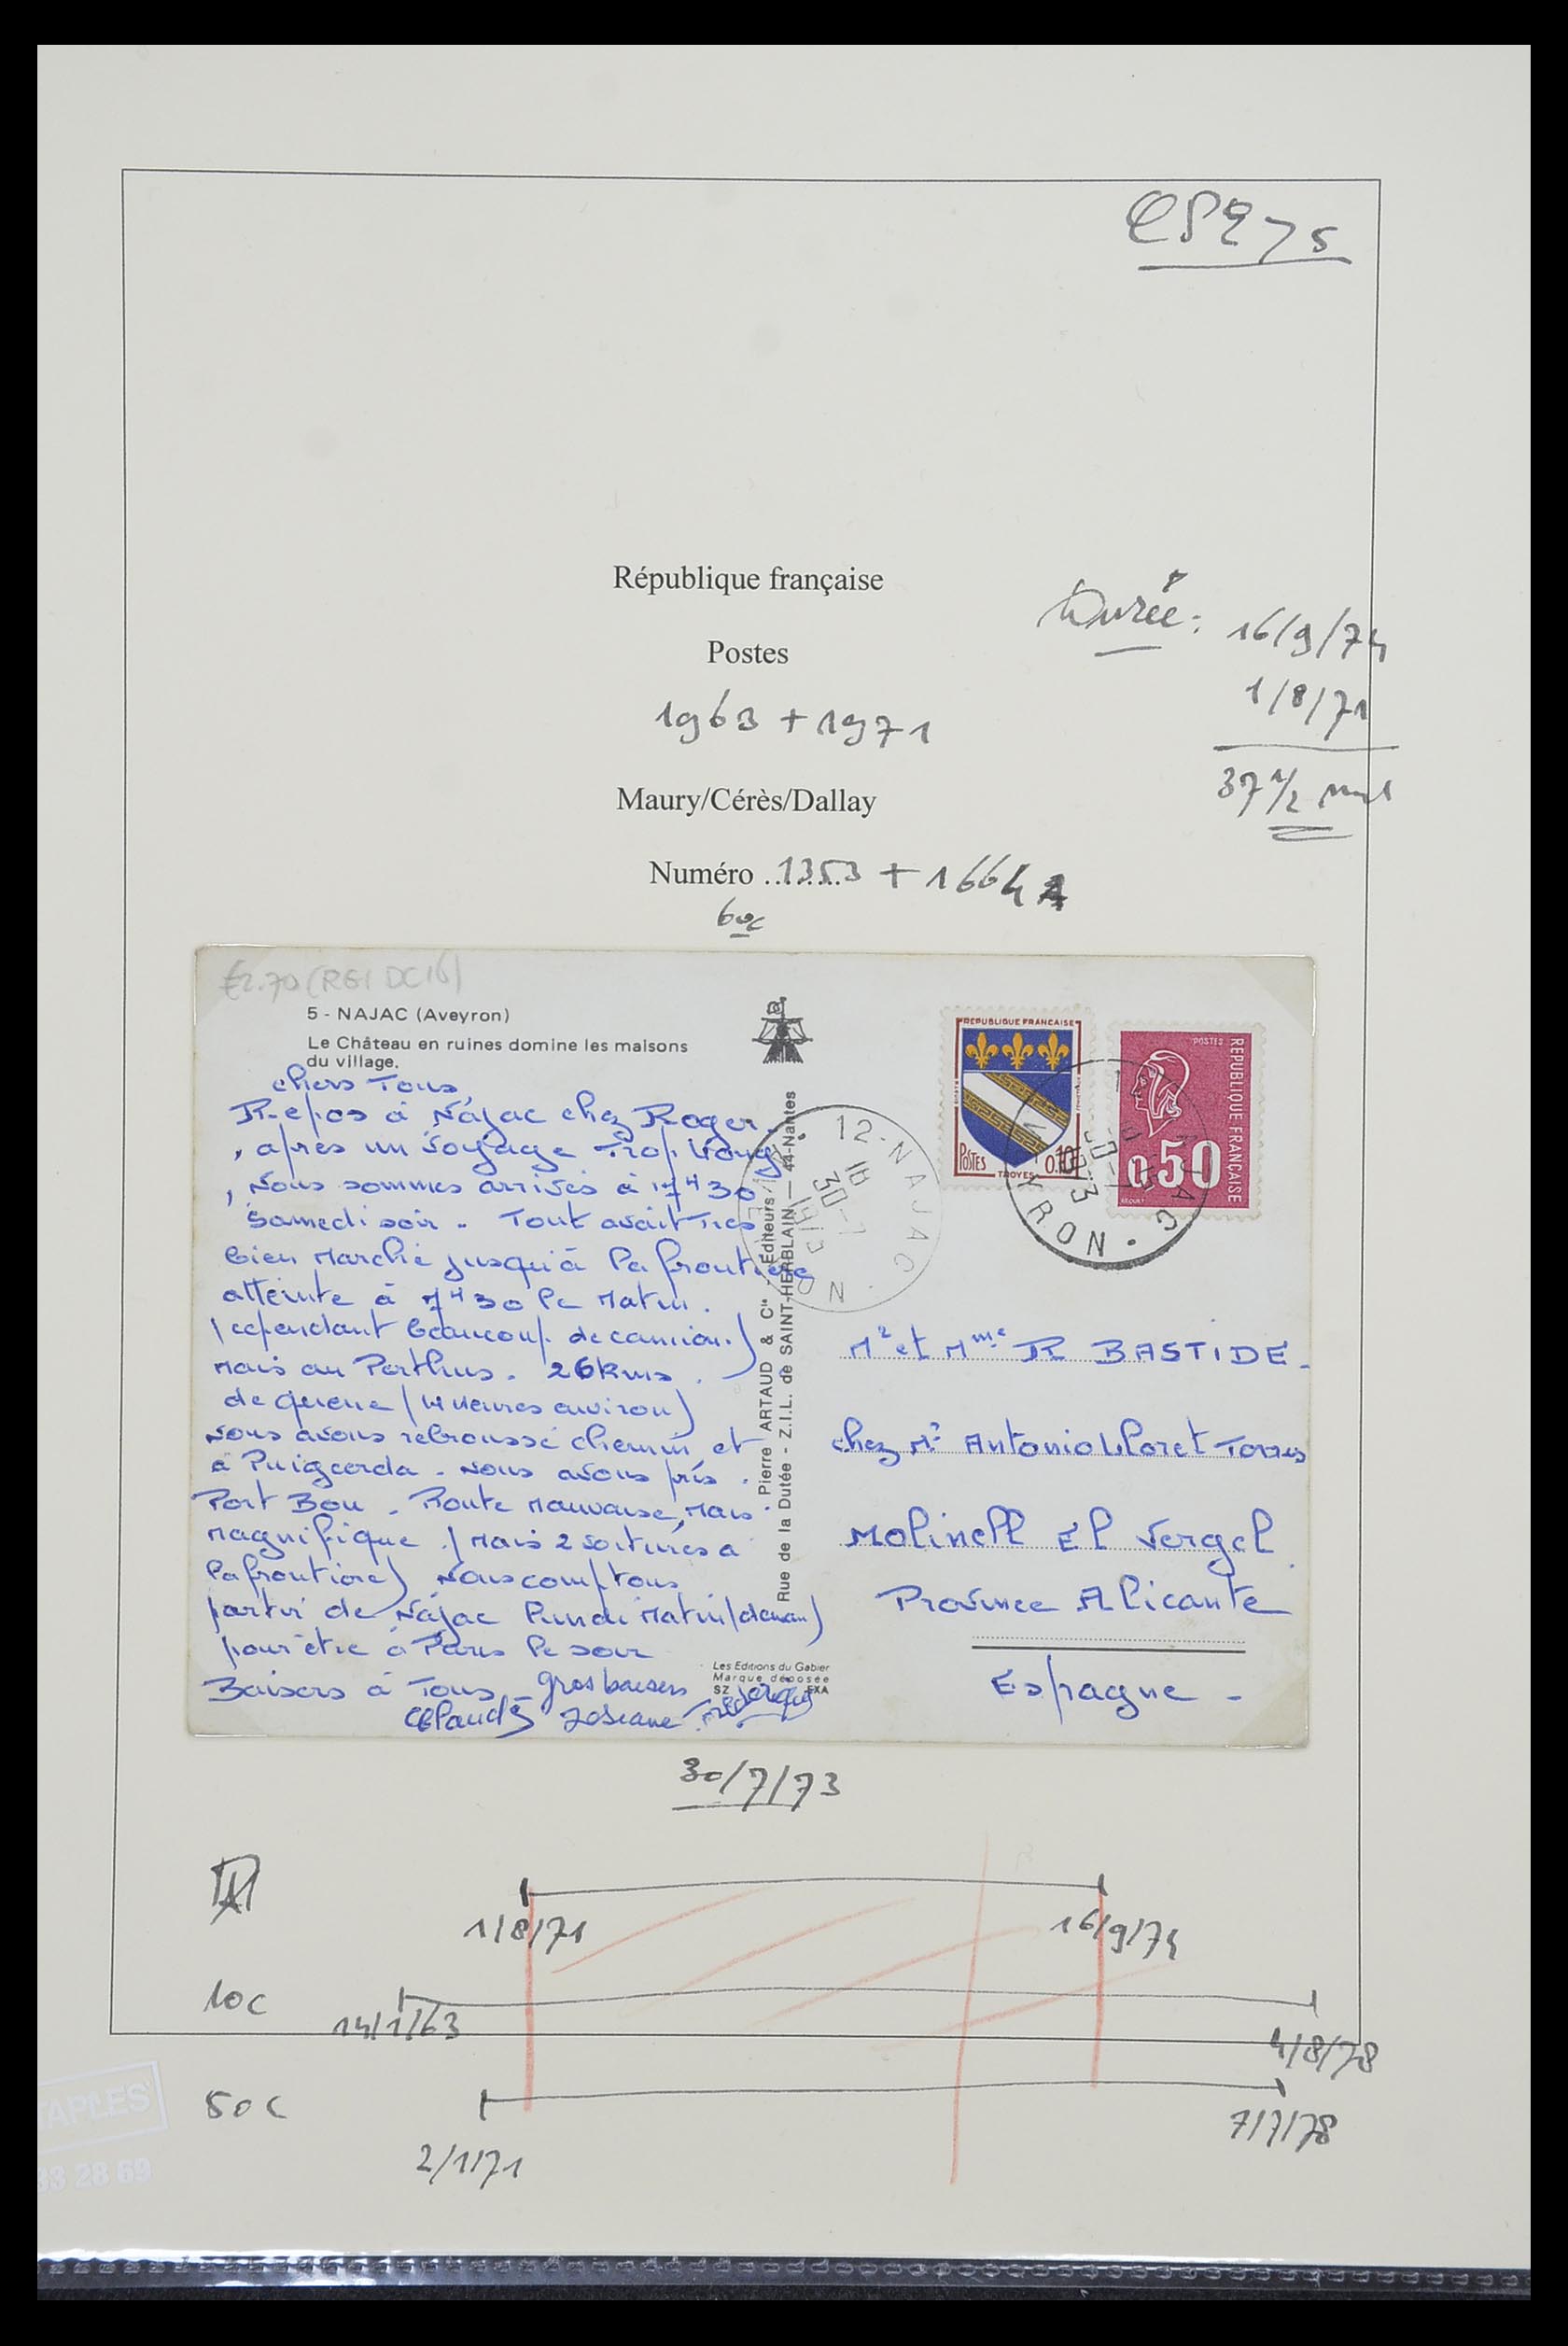 République française
Durée : 16/9/74
Postes
1/8/71
1963 + 1971
37 1/2
Maury/Cérès/Dallay
Numéro ........ 1353 + 1664
60c
€2.70 (
5 - NAJAC (Aveyron)
Le Château en ruines domine les maisons
du village.
chers Tous
Repos à Najac chez Roger.
, après un voyage Trop long
, Nous sommes arrivés à 17H30
Samedi soir - Tout avait Tres
bien Marché jusqu'à la frontière
atteinte à 7H30 le Matin.
(cependant beaucoup de camion.)
Mais au Perthus. 26 kms.
de queue (14 Heures environ)
Nous avons rebroussé chemin et
à Puigcerda. Nous avons pris.
Port Bou. Route Mauvaise, Mais
Magnifique. (Mais 2 voitures a
la frontiere) Nous comptons
partir de Najac Lundi Matin (demain)
pour être à Paris le soir
Baisers à Tous - gros baisers
Claude Josiane Frédérique
Pierre ARTAUD & Cie - Editeurs
Rue de la Dutée - Z.I.L. de SAINT-HERBLAIN — 44-Nantes
Les Editions du Gabier
Marque déposée
SZ EXA
12-NAJAC
16
30-7
1973
REPUBLIQUE FRANCAISE
POSTES 0.10
TROYES
POSTES
REPUBLIQUE FRANÇAISE
0.50
Mr et Mme R BASTIDE -
chez Mr Antonio Lloret Torres
Molinell El Vergel
Province Alicante
Espagne -
30/7/73
1/8/71 16/9/74
10c
14/1/63 4/8/78
50c
2/1/71 7/7/78